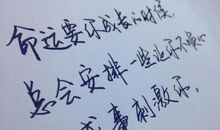 命运要你成长的时候,
总会安排一些让你不顺心
事刺激你.